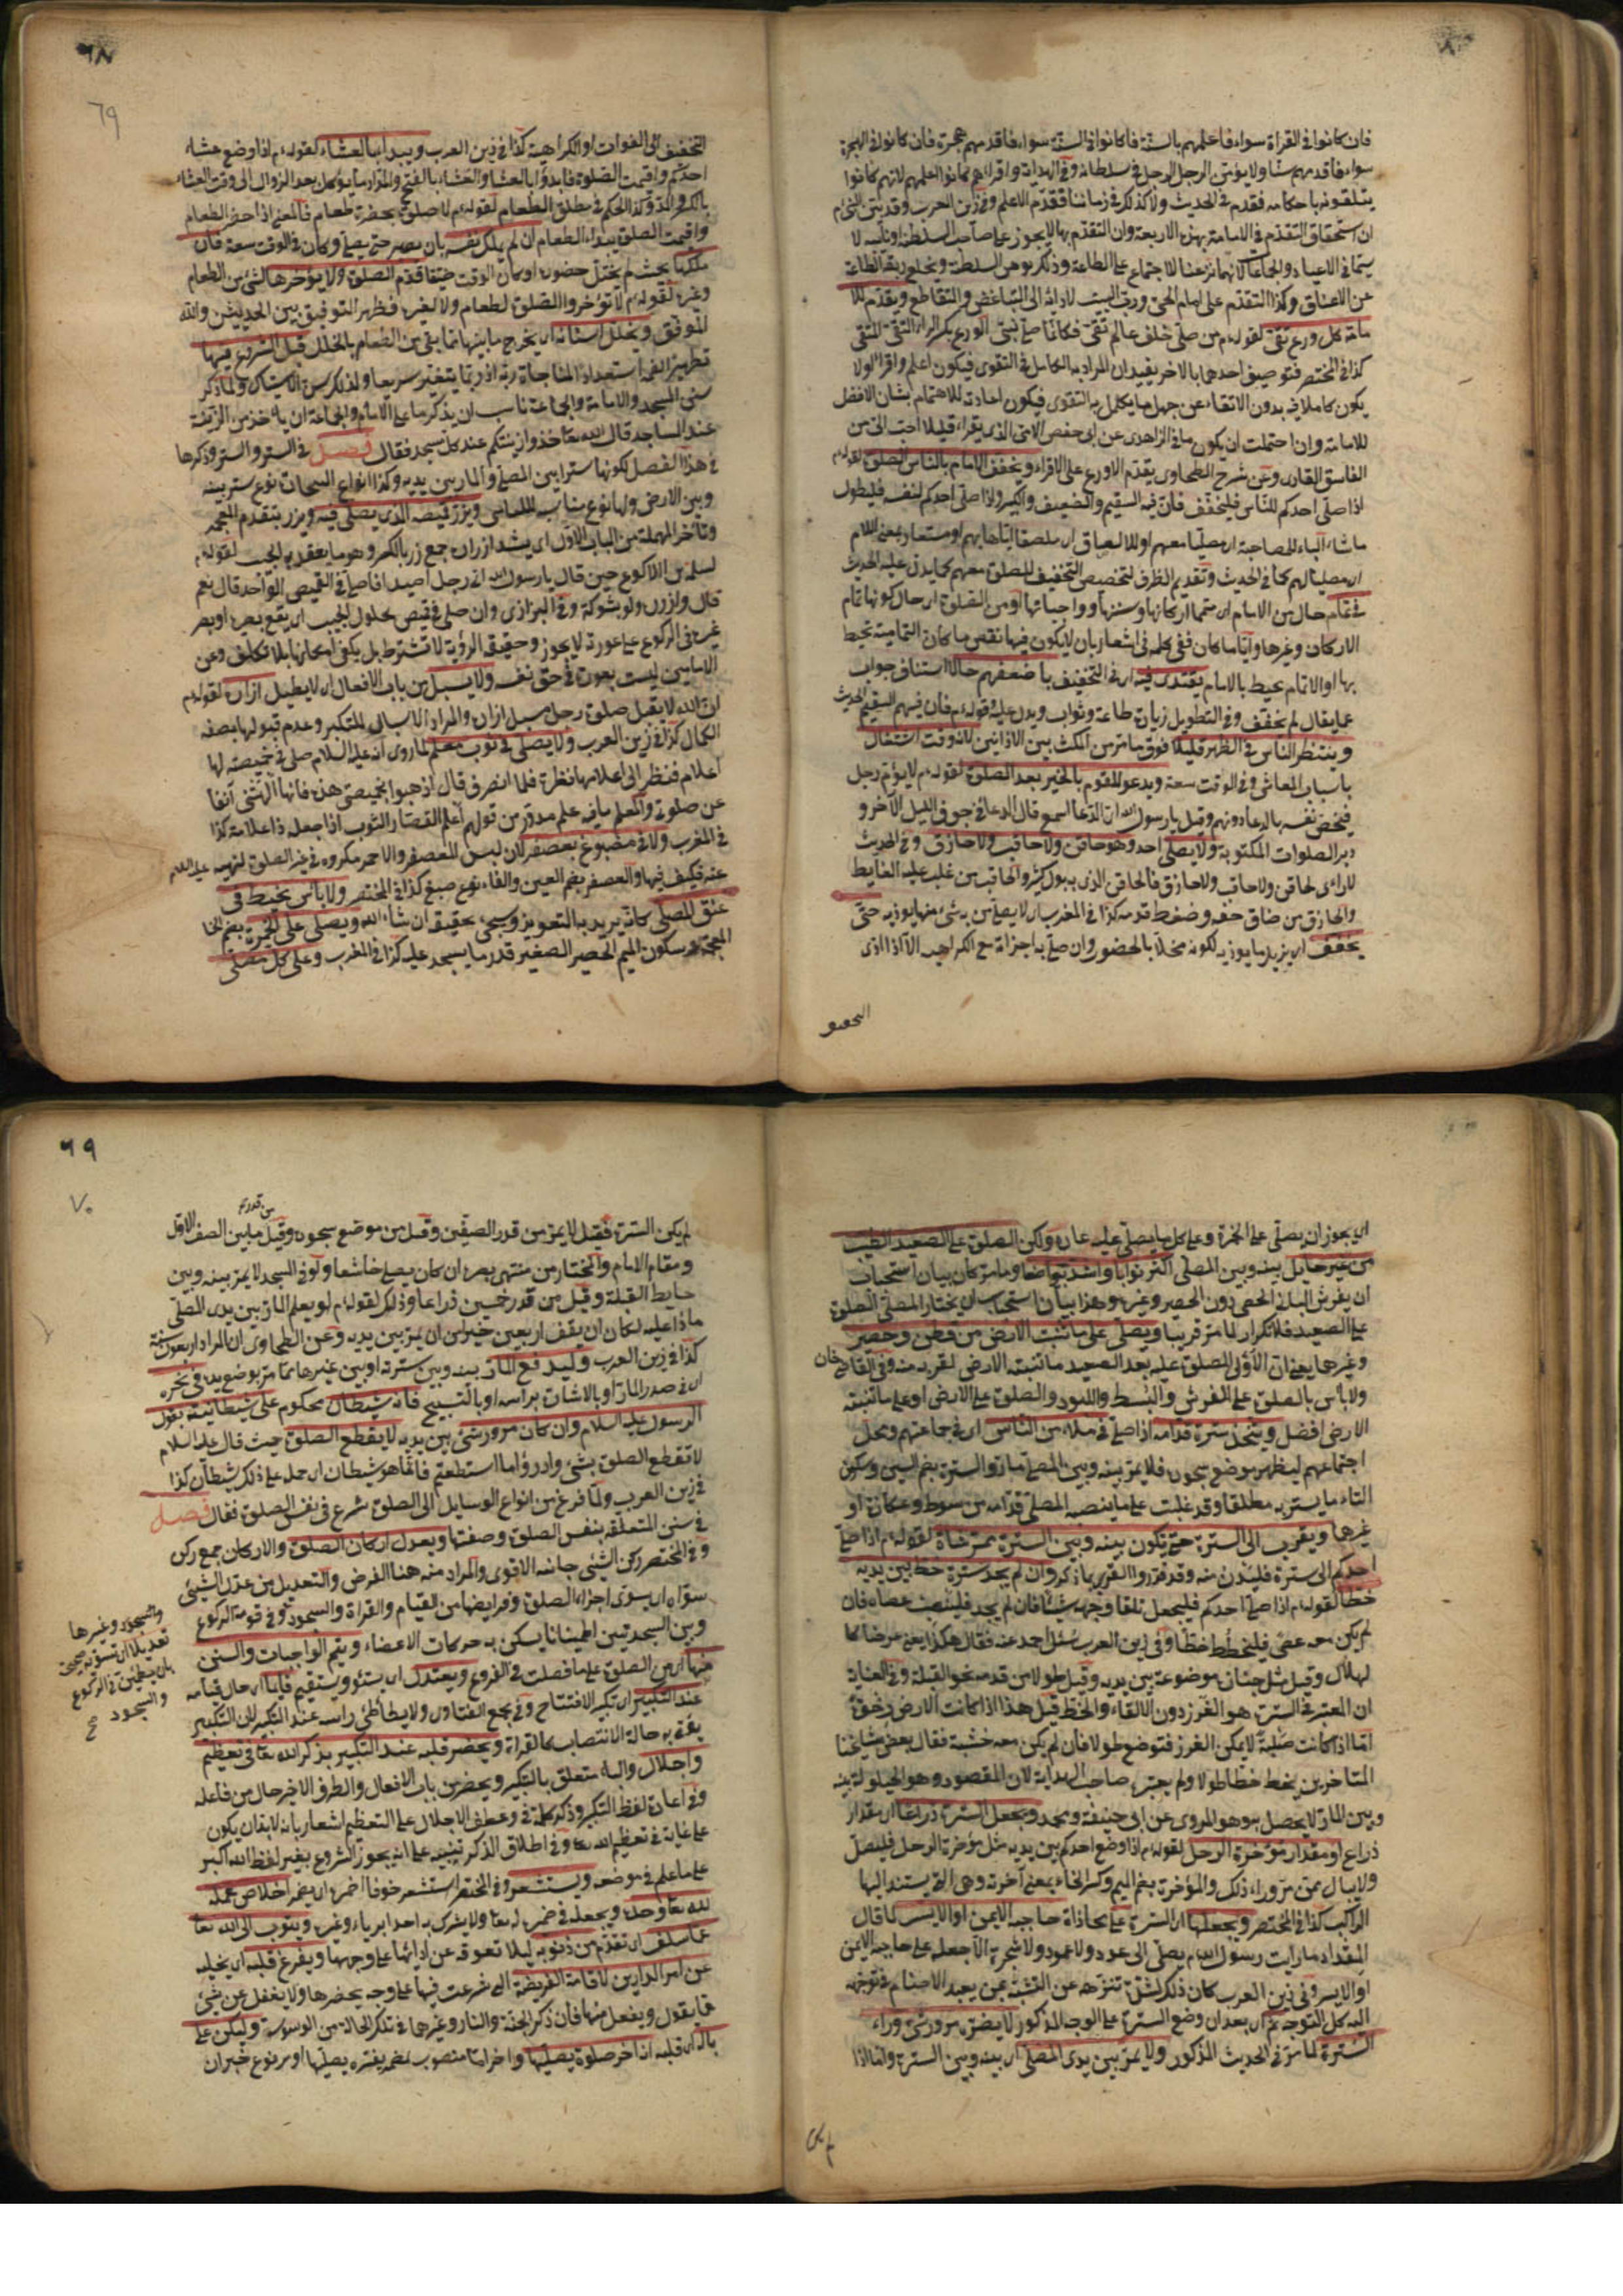 فان كانوا فى القراة سواء فاعلمهم بالسنة فاكانوا فى السنة سواء فاقدمهم هجرة فان كانوا فى الهجرة
سواء فاقدمهم سنا ولا يؤمن الرجل الرجل فى سلطانه وفى الهداية واقراهم كانوا اعلمهم لانهم كانوا
يتلقونه باحكامه فقدم فى الحديث ولا كذلك فى زماننا فقدم الاعلم وفى زين العرب وقد بين النبى م
ان استحقاق التقدم فى الامامة بهذه الاربعة وان التقدم بها لا يجوز على صاحب السلطنة ونايبه لا
سيما فى الاعياد والجماعا لانهما شرعتا للاجتماع على الطاعة وذكر يوهن السلطنة ويخلع ربقة الطاعة
عن الاعناق وكذا التقدم على امام الحى ورب البيت لادائه الى التباغض والتقاطع ويقدم للا
مامة كل ورع تقى لقوله م من صلى خلف عالم تقى فكانما صلى خلف نبى الورع بكسر الراء التقى المتقى
كذا فى المختصر فتوصيف احدهما بالاخر يفيد ان المراد به الكامل فى التقوى فيكون اعلم واقرا لولا
يكون كاملا فيه بدون الاتقاء عن جهل ما يكمل به التقوى فيكون اعادته للاهتمام بشان الافضل
للامامة وان احتملت ان يكون ما فى الزاهدى عن ابى حفص الامى الذى يقراء قليلا احب الى من
الفاسق القارى وعن شرح الطحاوى يقدم الاورع على الاقراء ويخفف الامام بالناس الصلوة لقوله م
اذا صلى احدكم للناس فليخفف فان فيه السقيم والضعيف والكبير واذا صلى احدكم لنفسه فليطول
ماشاء الباء للمصاحبة اى مصليا معهم او للالصاق اى ملصقا اياها بهم او مستعار بمعنى اللام
اى مصليا لهم كما فى الحديث وتقديم الظرف لتخصيص التخفيف للصلوة معهم كما يدل عليه الحديث
فى تمام حال من الامام اى متما اركانها وسننها وواجباتها او من الصلوة اى حال كونها تمام
الاركان وغيرها واياما كان ففى كلمة فى اشعار بان لا يكون فيها نقص ما كان التمامية تحيط
بها او الاتمام يحيط بالامام يقتدى فيه اى فى التخفيف باضعفهم حالا استئناف جواب
عما يقال لم يخفف وفى التطويل زيادة طاعة وثواب ويدل عليه قوله م فان فيهم السقيم الحديث
وينتظر الناس فى الظهر قليلا فوق ما مر من المكث بين الاذانين لانه وقت اشتغال
باسباب المعاش وفى الوقت سعة ويدعو للقوم بالخير بعد الصلوة لقوله م لا يؤم رجل
فيخص نفسه بالدعاء دونهم وقيل يا رسول الله اى الدعا اسمع قال الدعا فى جوف الليل الآخر و
دبر الصلوات المكتوبة ولا يصلى احد وهو حاقن ولا حاقب ولا حازق وفى الحديث
لا راى لحاقن ولا حاقب ولا حازق فالحاقن الذى به بول كثير والحاقب من غلب عليه الغايط
والحازق من ضاق خفه وضغط قدمه كذا فى المغرب اى لا يصلى من به شئ منها يؤذيه حتى
يخفف اى يزيل ما يوذيه لكونه مخلا بالحضور وان صلى به اجزاه مع الكراهية الا اذا ادى
التخفيف
٦٨
٦٩
التخفيف الى الفوات او الكراهية كذا فى زين العرب ويبداء بالعشاء لقوله م اذا وضع عشاء
احدكم واقيمت الصلوة فابدؤا بالعشا والعشاء بالفتح والمد ما يؤكل بعد الزوال الى وقت العشاء
بالكسر والمد وكذا الحكم فى مطلق الطعام لقوله م لا صلوة بحضرة طعام فالمعنى اذا حضر الطعام
واقيمت الصلوة يبداء بالطعام ان لم يملك نفسه بان يصبر حتى يصلى وكان فى الوقت سعة فان
ملكها بحيث لم يختل حضوره او كان الوقت ضيقا قدم الصلوة ولا يؤخرها لشئ من الطعام
وغيره لقوله م لا تؤخروا الصلوة لطعام ولا لغيره فظهر التوفيق بين الحديثين والله
الموفق ويخلل اسنانه اى يخرج ما بينها مما بقى من الطعام بالخلال قبل الشروع فيها
تطهيرا لفمه استعدادا لمناجاة ربه اذ ربما يتغير سريعا ولذلك سن الاستياك ولما ذكر
سنن المسجد والامامة والجماعة ناسب ان يذكر ما على الامام والجماعة ان ياخذ من الزينة
عند المساجد قال الله تعا خذوا زينتكم عند كل مسجد فقال فصل فى الستر والستر وذكرها
فى هذا الفصل لكونها ستر ابين المصلى والمار بين يديه وكذا انواع السجادة نوع ستر بينه
وبين الارض ولها نوع مناسبة لللباس ويزر قميصه الذى يصلى فيه ويزر بتقدم المعجمة
وتاخر المهملة من الباب الاول اى يشد ازراره جمع زر بالكسر وهو ما يعقد به الجيب لقوله م
لسلمة بن الاكوع حين قال يا رسول الله انى رجل اصيد افاصلى فى القميص الواحد قال نعم
قال وازرره ولو بشوكة وفى البزازى وان صلى فى قميص محلول الجيب ان يقع بصره او بصر
غيره فى الركوع على عورته لا يجوز وحقيقة الرؤية لا تشترط بل يكفى امكانها بلا تكلف وعن
الامامين ليست بعورة فى حق نفسه ولا يسبل من باب الافعال اى لا يطيل ازاره لقوله م
ان الله لا يقبل صلوة رجل مسبل ازاره والمراد الاسبال للتكبر وعدم قبولها بصفة
الكمال كذا فى زين العرب ولا يصلى فى ثوب معلم لما روى انه عليه السلام صلى فى خميصة لها
اعلام فنظر الى اعلامها نظرة فلما انصرف قال اذهبوا بخميصتى هذه فانها الهتنى آنفا
عن صلوتى والمعلم ما فيه علم مدور من قولهم اعلم القصار الثوب اذا جعله ذا علامة كذا
فى المغرب ولا فى مصبوغ بعصفر لان لبس المعصفر والاحمر مكروه فى غير الصلوة لنهيه عليه السلام
عنه فكيف فيها والعصفر بضم العين والفاء نوع صبغ كذا فى المختصر ولا باس بخيط فى
عنق المصلى كانه يريد به التعويذ وسيجئ تحقيقه ان شاء الله ويصلى على الخمرة بضم الخا
المعجمة وسكون الميم الحصير الصغير قدر ما يسجد عليه كذا فى المغرب وعلى كل مصلى
اى يجوز ان يصلى على الخمرة وعلى كل ما يصلى عليه عادة ولكن الصلوة على الصعيد الطيب
من غير حايل بينه وبين المصلى اكثر ثوابا واشد تواضعا وما مر كان بيان استحباب
ان يفرش البلد الحصى دون الحصير وغيره وهذا بيان استحباب ان يختار المصلى الصلوة
على الصعيد فلا تكرار لما مر قريبا ويصلى على ما تنبت الارض من قطن وحصير
وغيرهما يعنى ان الاولى للصلوة عليه بعد الصعيد ما تنبته الارض لقربه منه وفى القاضى خان
ولا باس بالصلوة على الفرش والبسط واللبود والصلوة على الارض او على ما تنبته
الارض افضل ويتخذ سترة قدامه اذا صلى فى ملاء من الناس اى فى جماعتهم ومحل
اجتماعهم ليظهر موضع سجوده فلا يمر بينه وبين المصلى مار والسترة بضم السين وسكون
التاء ما يستر به مطلقا وقد غلبت على ما ينصبه المصلى قدامه من سوط وعكازة او
غيرها ويقرب الى السترة حتى يكون بينه وبين السترة ممر شاة لقوله م اذا صلى
احدكم الى سترة فليدن منه وقد قدروا القرب بما ذكر وان لم يجد سترة خط بين يديه
خطا لقوله م اذا صلى احدكم فليجعل تلقا وجهه شيئا فان لم يجد فلينصب عصاه فان
لم يكن معه عصى فليخطط خطا وفى زين العرب سئل احمد عنه فقال هكذا يعنى عرضا كا
لهلال وقيل مثل جنازة موضوعة بين يديه وقيل طولا من قدمه نحو القبلة وفى العناية
ان المعتبر فى السترة هو الغرز دون الالقاء والخط قيل هذا اذا كانت الارض رخوة
اما اذا كانت صلبة لا يمكن الغرز فتوضع طولا فان لم يكن معه خشبة فقال بعض مشايخنا
المتاخرين يخط خطا طولا ولم يعتبره صاحب الهداية لان المقصود وهو الحيلولة بينه
وبين المار لا يحصل به وهو المروى عن ابى حنيفة ومحمد ويجعل السترة ذراعا اى مقدار
ذراع او مقدار مؤخرة الرحل لقوله م اذا وضع احدكم بين يديه مثل مؤخرة الرحل فليصل
ولا يبال بمن مر وراء ذلك والمؤخرة بضم الميم وكسر الخاء بمعنى آخرته وهى التى يستند اليها
الراكب كذا فى المختصر ويجعلها اى السترة على محاذاة حاجبه الايمن او الايسر كما قال
المقداد ما رايت رسول الله م يصلى الى عود ولا عمود ولا شجرة الا جعله على حاجبه الايمن
او الايسر وفى زين العرب كان ذلك لشدة تنزهه عن التشبه بمن يعبد الاصنام فى توجهه
اليه كل التوجه ثم اى بعد ان وضع السترة على الوجه المذكور لا يضره مرور شئ وراء
السترة لما مر فى الحديث المذكور ولا يمر بين يدى المصلى اى بينه وبين السترة واما اذا
لم يكن
٦٩
٧٠
من قدره م
لم يكن السترة فقيل لا يمر من قدر الصفين وقيل من موضع سجوده وقيل ما بين الصف الاول
ومقام الامام والمختار من منتهى بصره ان كان يصلى خاشعا ولو فى المسجد لا يمر بينه وبين
حايط القبلة وقيل من قدر خمسين ذراعا وذلك لقوله م لو يعلم المار بين يدى المصلى
ماذا عليه لكان ان يقف اربعين خير له من ان يمر بين يديه وعن الطحاوى ان المراد اربعون سنة
كذا فى زين العرب وليدفع المار بينه وبين سترته او بين غيرها مما مر بوضع يده فى نحره
اى فى صدر المار او بالاشارة براسه او بالتسبيح فانه شيطان محكوم على شيطانيته بقول
الرسول عليه السلام وان كان مرور شئ بين يديه لا يقطع الصلوة حيث قال عليه السلام
لا تقطع الصلوة بشئ وادرؤا ما استطعتم فانما هو شيطان اى حمله على ذلك شيطان كذا
فى زين العرب ولما فرغ من انواع الوسايل الى الصلوة شرع فى نفس الصلوة فقال فصل
فى سنن المتعلقة بنفس الصلوة وصفتها ويعدل اركان الصلوة والاركان جمع ركن
وفى المختصر ركن الشئ جانبه الاقوى والمراد منه هنا الفرض والتعديل من عدل الشئ
سواه اى يسوى اجزاء الصلوة وفرايضها من القيام والقراة والسجود وفى قومة الركوع
وبين السجدتين اطمينانا يسكن به حركات الاعضاء ويتم الواجبات والسنن
منها اى من الصلوة على ما فصلت فى الفروع ويعتدل اى يستوى ويستقيم قايما اى حال قيامه
عند التكبير اى تكبير الافتتاح وفى مجمع الفتاوى ولا يطاطئ راسه عند التكبير لان التكبير
يقع به حالة الانتصاب كالقراءة ويحضر قلبه عند التكبير بذكر الله تعا فى تعظيم
واجلال والباء متعلق بالتكبير ويحضر من باب الافعال والظرف الاخير حال من فاعله
وفى اعادة لفظ التكبير وذكر كلمة فى وعطف الاجلال على التعظيم اشعار بانه لابد ان يكون
على غاية فى تعظيم الله تعا وفى اطلاق الذكر تنبيه على انه يجوز الشروع بغير لفظ الله اكبر
على ما علم فى موضعه ويستشعر وفى المختصر استشعر خوفا اضمره اى يضمر اخلاص عمله
لله تعا وحده ويجعله فى ضميره له تعا ولا يشرك به احدا برياء وغيره ويتوب الى الله تعا
عما سلف اى تقدم من ذنوبه ليلا تعوقه عن ادائها على وجهها ويفرغ قلبه اى يخليه
عن امر الدارين لاقامة الفريضة التى شرعت فيها على وجه يحضرها ولا يغفل عن شئ
مما يقول ويفعل منها فان ذكر الجنة والنار وغيرهما فى تلك الحالة من الوسوسة وليكن على
باله اى قلبه ان آخر صلوة يصليها واخر اما منصوب بمضمر يفسره يصليها او مرفوع خبر ان
والسجود وغيرها
تعديلا اى تسوية صحيحة
بان يطمئن فى الركوع
والسجود صح